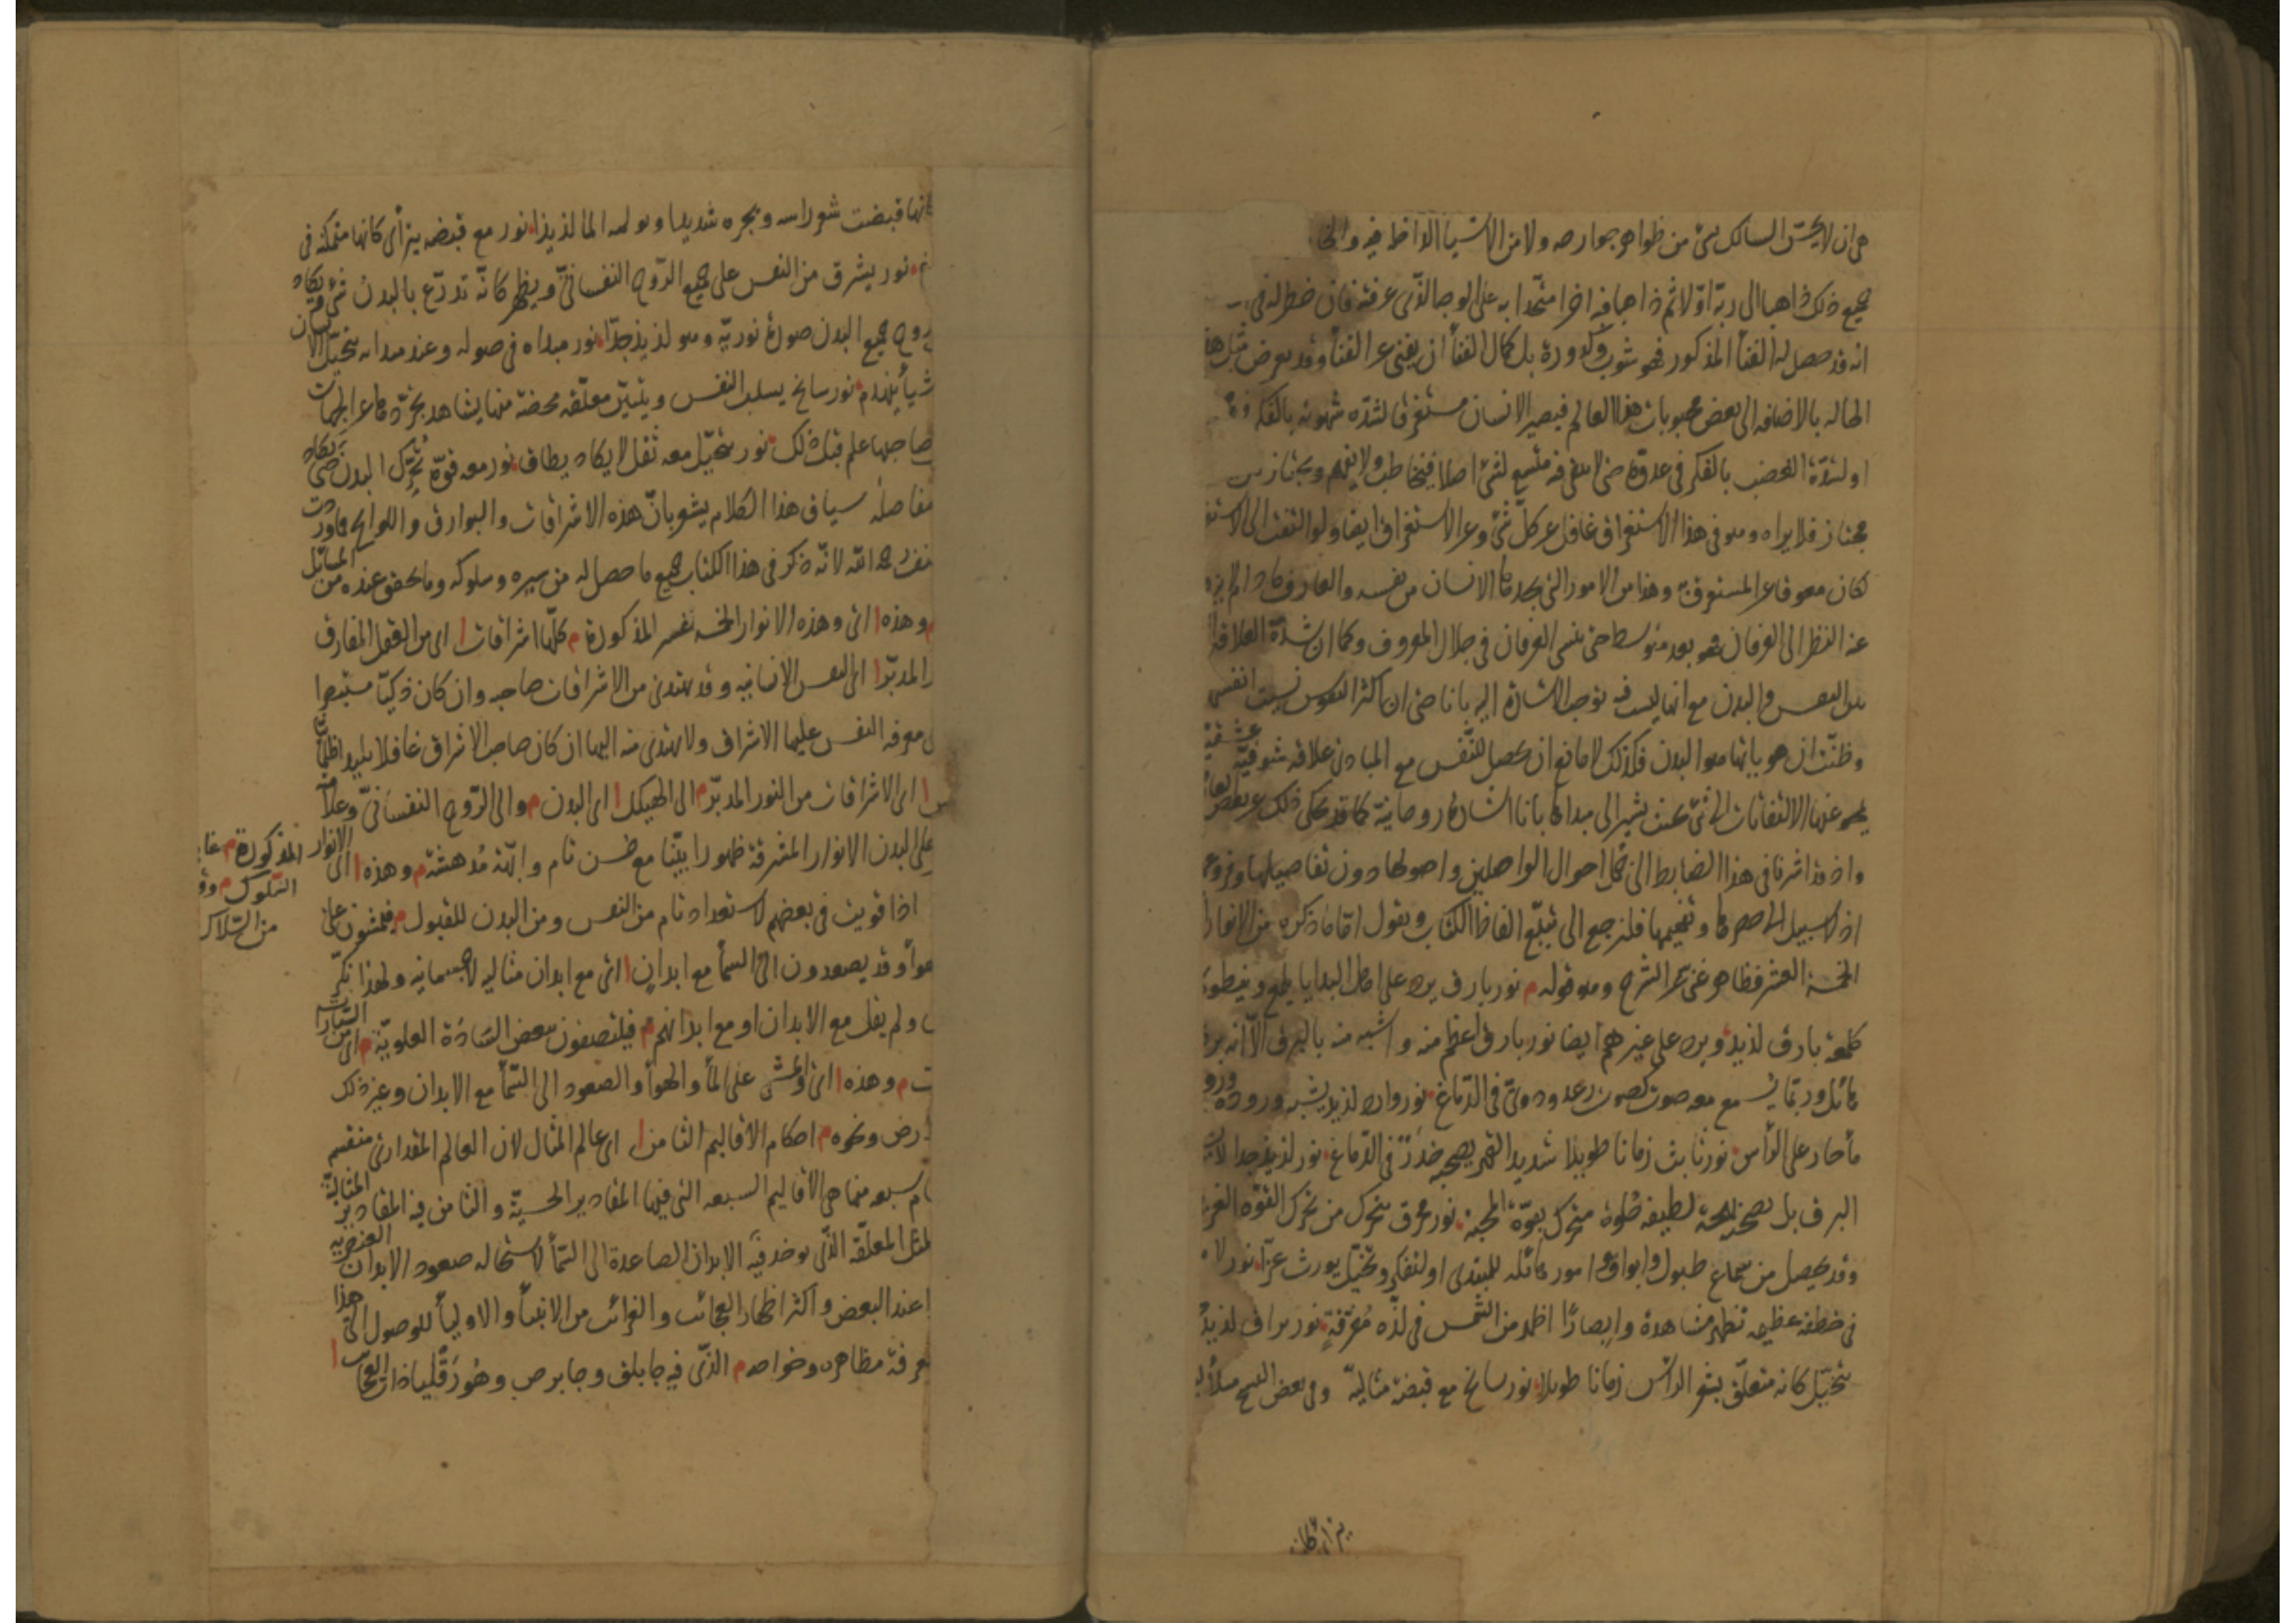 هى ان لا يحسّ السالك بشئ من ظواهر جوارحه ولا من الاشياء الداخله فيه
جميع ذلك ذاهبا الى ربّه اوّلا ثم ذاهبا فيه اخرا متّحدا به على الوجه الذّى عرفته فان خطر له فى
انه قد حصل له الفنأ المذكور فهو شوب وكدورة بل كمال الفنأ ان يفنى عن الفنأ وقد يعرض مثل هذه
الحاله بالاضافه الى بعض محبوبات هذا العالم فيصير الانسان مستغرقا لشدّه شهوته بالفكر
او لشدّة الغضب بالفكر فى عدوّه حتى لا يبقى فيه متّسع لشئ اصلا فيخاطب ولا يفهم ويجتاز بين
مجتاز فلا يراه وهو فى هذا الاستغراق غافل عن كلّ شئ وعن الاستغراق ايضا ولو التفت الى
لكان معوقا عن المستغرق به وهذا من الامور التى يجدها الانسان من نفسه والعارف ما دام
عنه النظر الى العرفان فهو بعد متوسط حتى ينسى العرفان فى جلال المعروف وكما ان شدّة العلاقه
بين النفس والبدن مع انها ليست فيه توجب الاشارة اليه بانا حتى ان اكثر النفوس نسيت انفسها
وظنّت ان هويتها هو البدن فكذلك لا مانع ان يحصل للنّفس مع المبادى علاقه شوقيّه عشقيّه
يمحو عنها الالتفات الى شئ بحيث تشير الى مبدأها بانا اشارة روحانيّة كما قد حكى ذلك عن بعض
واذ قد اشرنا فى هذا الضابط الى كل احوال الواصلين واصولها دون تفاصيلها وفروعها
اذ لا سبيل الى حصرها وتفهيمها فلنرجع الى تتبّع الفاظ الكتاب ونقول امّا ما ذكره من الانوار
الخمسة العشر فظاهر غنى عن الشرح وهو قوله م نور بارق يرد على اهل البدايا يلمع وينطوى
كلمعة بارق لذيذ ويرد على غيرهم ايضا نور بارق اعظم منه واشبه منه بالبرق الّا انه برق
هائل وربّما يسمع معه صوت كصوت رعد ودوىّ فى الدّماغ نور وارد لذيذ يشبه وروده ورود
مأ حار على الرأس نور ثابت زمانا طويلا شديد القهر يصحبه خدر فى الدّماغ نور لذيذ جدا لا يشبه
البرق بل يصحبه بهجة لطيفه حُلوة يتحرّك بقوّة المحبّة نور محرق يتحرّك من تحرّك القوّه العزّية
وقد يحصل من سماع طبول وابواق وامور هائله للمبتدى او لتفكّر وتخيّل يورث عزّا نور لامع
فى خطفة عظيمه تظهر مشاهدة وابصارًا اظهر من الشمس فى لذّه مُغرقةٍ نور براق لذيذ
يتخيّل كانه متعلّق بشعر الرأس زمانا طويلا نور سانح مع قبضة مثاليّة وفى بعض النسخ
كانها قبضت شعر راسه وبجره شديدا ويولمه الما لذيذا نور مع قبضه يترأى كانها متمكنة فى
نور يشرق من النفس على جميع الروح النفسانىّ ويظهر كانّه تدرّع بالبدن شئ ويكاد
روح جميع البدن صورة نوريّه وهو لذيذ جدّا نور مبداه فى صوله وعند مبدائه يتخيّل الانسان
شيأ ينهدم نور سانح يسلب النفس ويتبيّن معلّقه محضة منها يشاهد تجرّدها عن الجهات
صاحبها علم قبل ذلك نور يتخيّل معه ثقل لا يكاد يطاق نور معه قوّه تُحرّك البدن حتّى يكاد
مفاصله سياق هذا الكلام يشعر بانّ هذه الاشراقات والبوارق واللوائح ما وردت
نفسه رحمه الله لانّه ذكر فى هذا الكتاب جميع ما حصل له من سيره وسلوكه وما تحقق عنده من المسائل
م وهذه ا اى وهذه الانوار الخمسه عشر المذكورة م كلّها اشراقات ا اى من العقل المفارق
المدبّر ا اى النفس الانسانيه وقد يهتدى من الاشراقات صاحبه وان كان ذكيّا مستبصرا
معرفه النفس عليها الاشراق ولا يهتدى منه اليها ان كان صاحب الاشراق غافلا بليدا
ا اى الاشراقات من النور المدبّر م الى الهيكل ا اى البدن م والى الرّوح النفسانىّ وعلامه
على البدن الانوار المشرقة ظهورا بيّنا مع حسن تام وابّهة مُدهشة م وهذه ا اى الانوار
المذكورة م غايه
السّلوك م وقد
من السّلاك
اذا قويت فى بعضهم لاستعداد تام من النفس ومن البدن للقبول م فيمشون على
هوأ وقد يصعدون الى السمأ مع ابدانٍ ا اى مع ابدان مثاليه لا جسمانيه ولهذا نكّر
ولم يقل مع الابدان او مع ابدانهم م فيلتصقون ببعض السّادة العلويّة م اى من السّيارات
م وهذه ا اى والمشى على المأ والهوأ والصعود الى السّمأ مع الابدان وغير ذلك
الارض ونحوه م احكام الاقاليم الثامن ا اى عالم المثال لان العالم المقدارىّ منقسم
اقسام سبعه منها هى الاقاليم السبعه التى فيها المقادير الحسيّة والثامن فيه المقادير المثاليّة
المثل المعلّقه الّذى يوخذ فيه الابدان الصاعدة الى السّمأ لاستحاله صعود الابدان العنصريه
عند البعض واكثر اظهار العجائب والغرائب من الانبيأ والاوليأ للوصول الى هذا
معرفة مظاهره وخواصه م الذّى فيه جابلق وجابرص وهُورَقْليا ذات العجائب ا